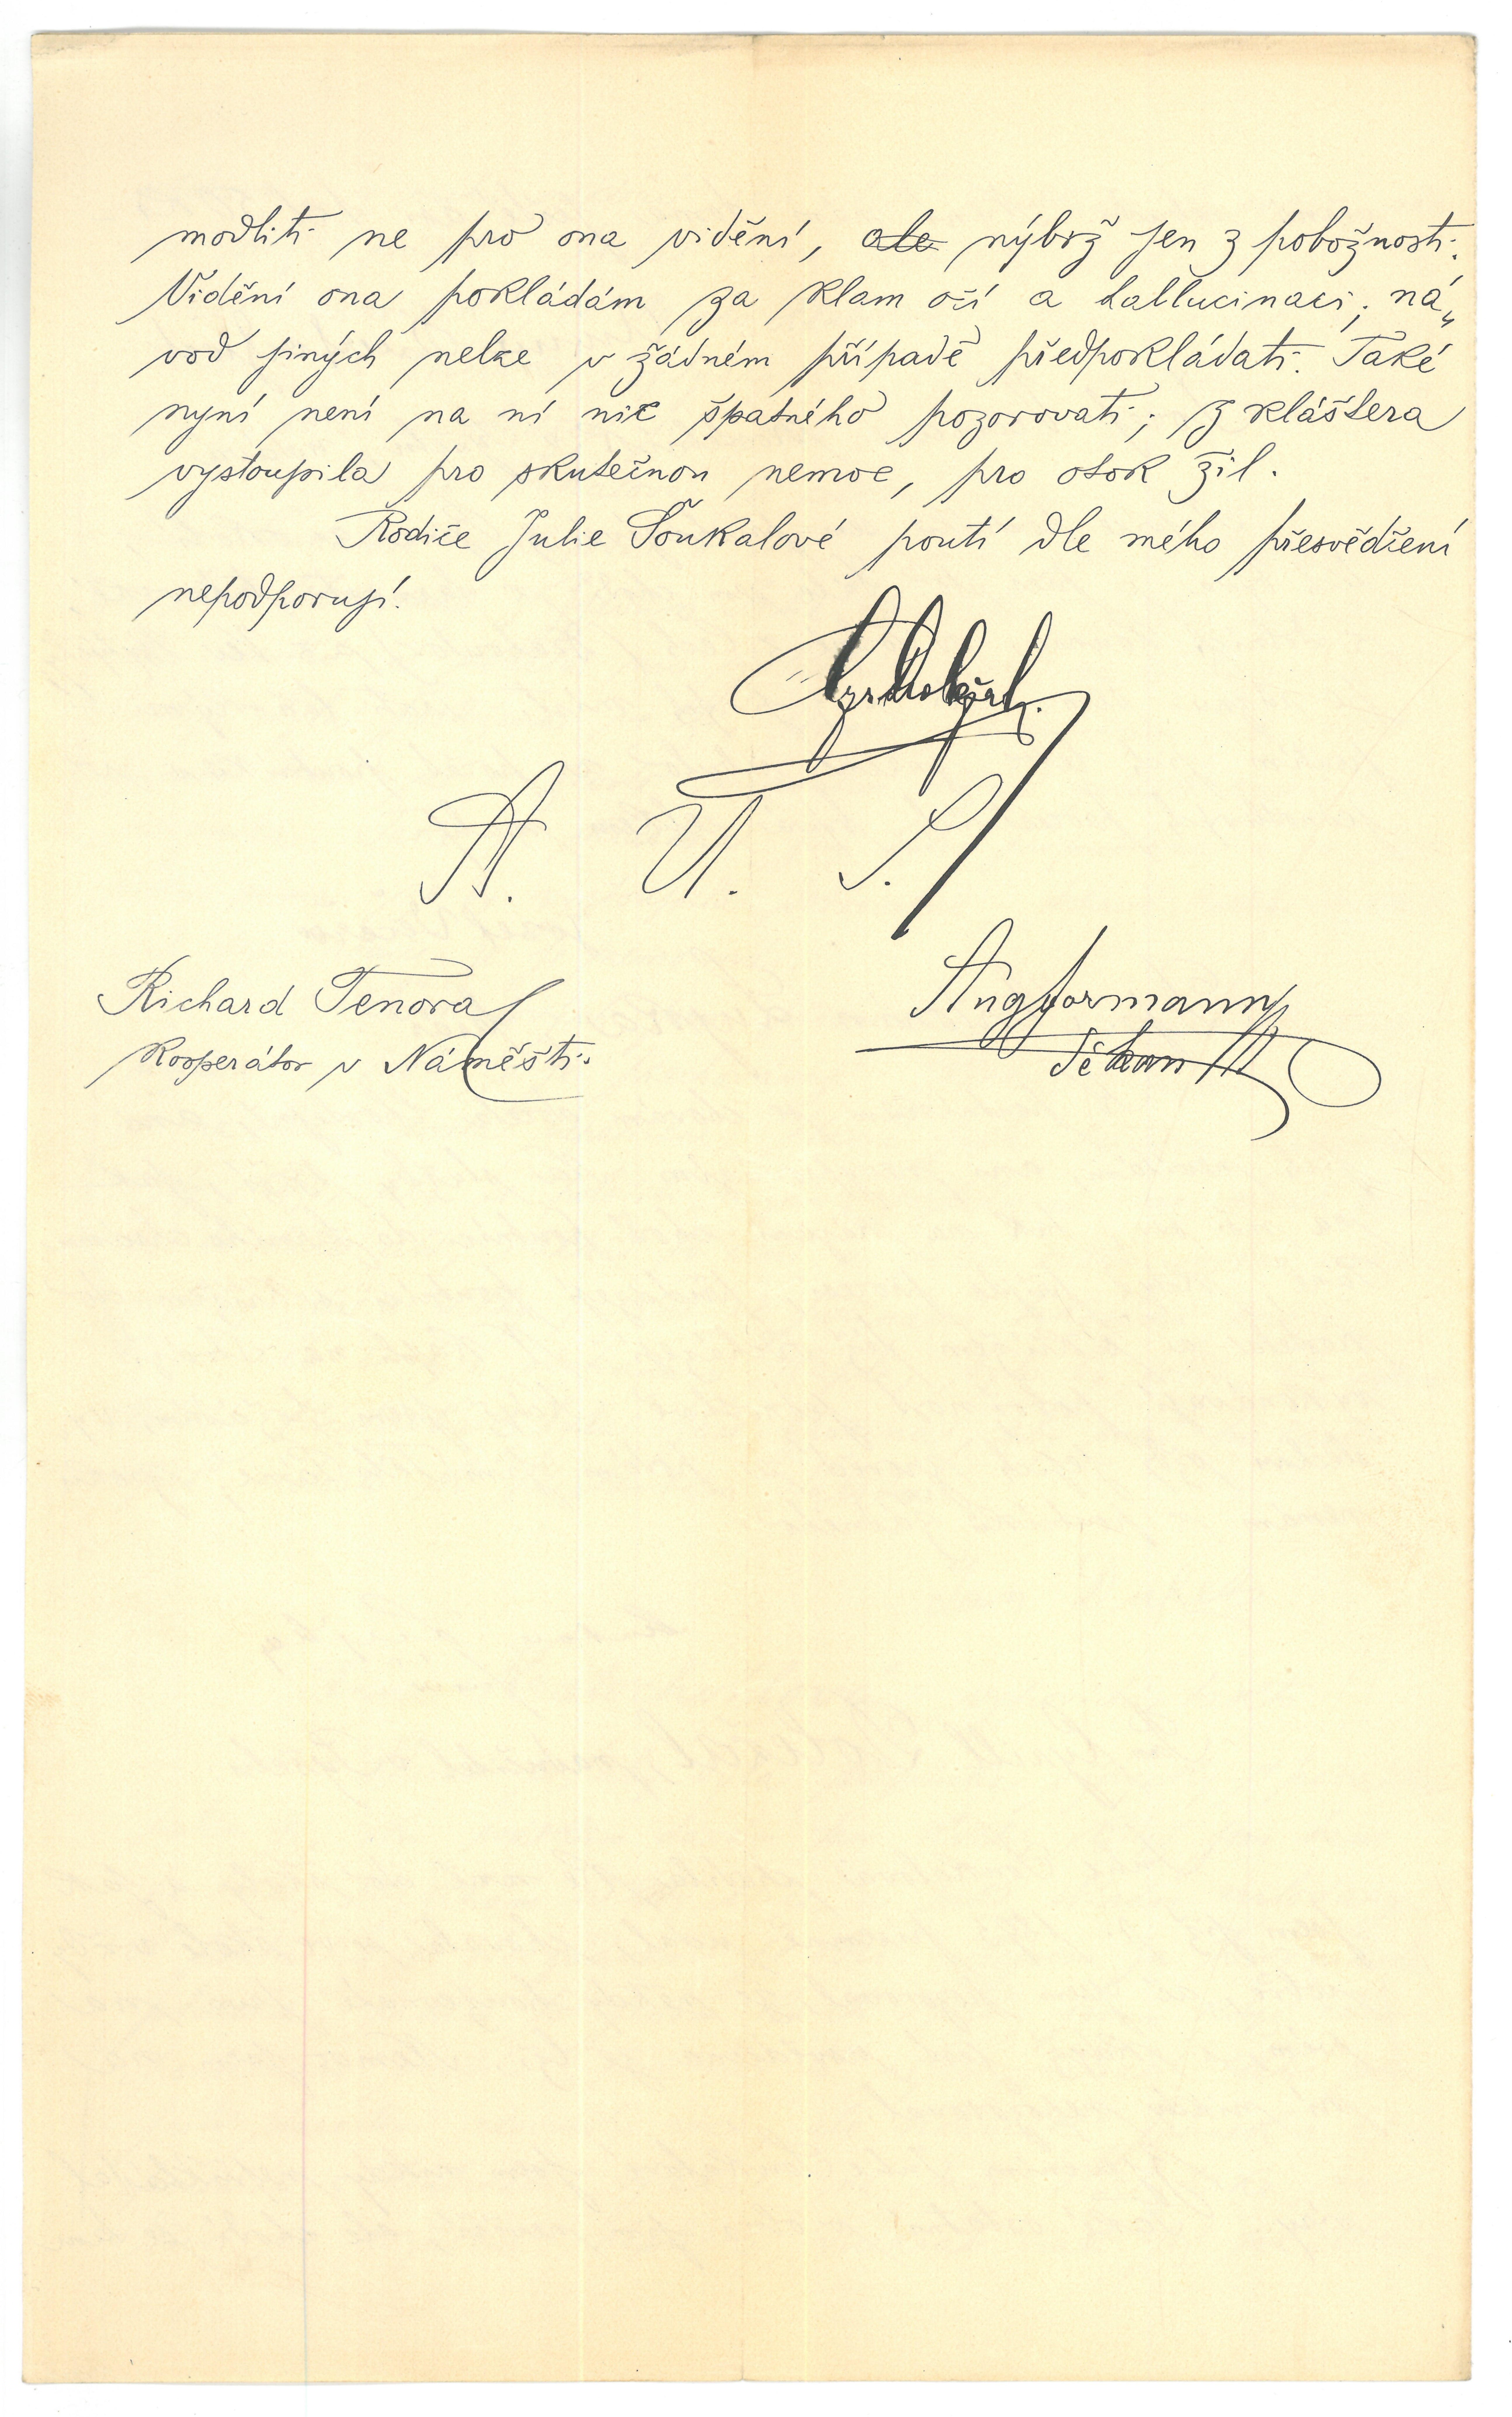 modliti ne pro ona vidění, ale nýbrž jen z pobožnosti.
Vidění ona pokládám za klam očí a hallucinaci; ná„
vod jiných nelze v žádném případě předpokládati. Také
nyní není na ní nic špatného pozorovati; z kláštera
vystoupila pro skutečnou nemoc, pro otok žil.
Rodiče Julie Šoukalové poutí dle mého přesvědčení
nepodporují.
A. U. S.
Richard Tenora
Kooperátor v Náměšti.
děkan